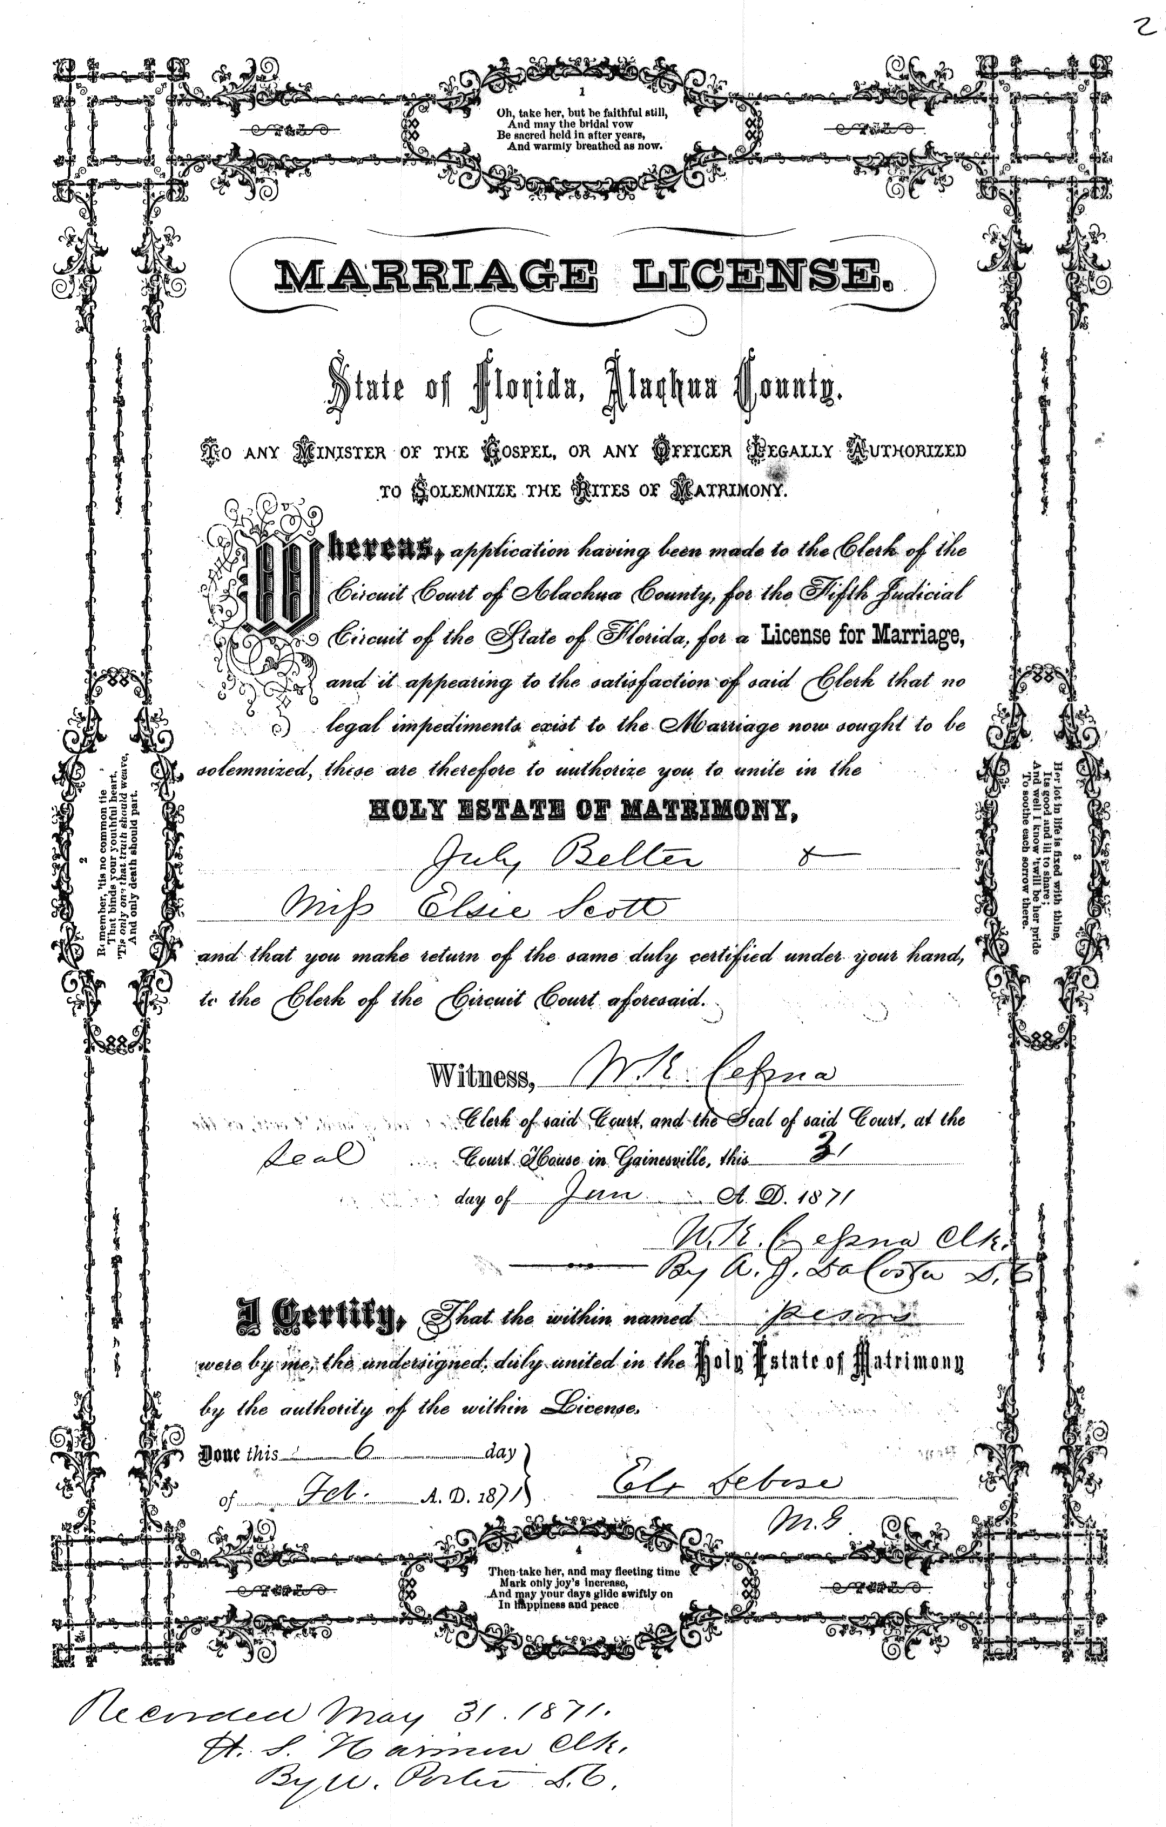 2
1
Oh, take her, but be faithful still,
And may the bridal vow
Be sacred held in after years,
And warmly breathed as now.
MARRIAGE LICENSE.
State of Florida, Alachua County.
To any Minister of the Gospel, or any Officer Legally Authorized
to Solemnize the Rites of Matrimony.
Whereas, application having been made to the Clerk of the
Circuit Court of Alachua County, for the Fifth Judicial
Circuit of the State of Florida, for a License for Marriage,
and it appearing to the satisfaction of said Clerk that no
legal impediments exist to the Marriage now sought to be
solemnized, these are therefore to authorize you to unite in the
HOLY ESTATE OF MATRIMONY,
July Belter &
Miss Elsie Scott
and that you make return of the same duly certified under your hand,
to the Clerk of the Circuit Court aforesaid.
Witness, W. K. Cessna
Clerk of said Court, and the Seal of said Court, at the
Seal Court House in Gainesville, this 31
day of Jan A. D. 1871
W. K. Cessna Clk.
By A. J. DaCosta D. C
I Certify, That the within named persons
were by me, the undersigned, duly united in the Holy Estate of Matrimony
by the authority of the within License.
Done this 6 day
of Feb. A. D. 1871
Debose
M. G
2
Remember, 'tis no common tie
That binds your youthful heart,
'Tis only one that truth should weave,
And only death should part.
3
Her lot in life is fixed with thine,
Its good and ill to share;
And well I know 'twill be her pride
To soothe each sorrow there.
4
Then take her, and may fleeting time
Mark only joy's increase,
And may your days glide swiftly on
In happiness and peace
Recorded May 31. 1871.
H. S. Harmon Clk.
By W. Porter D. C.